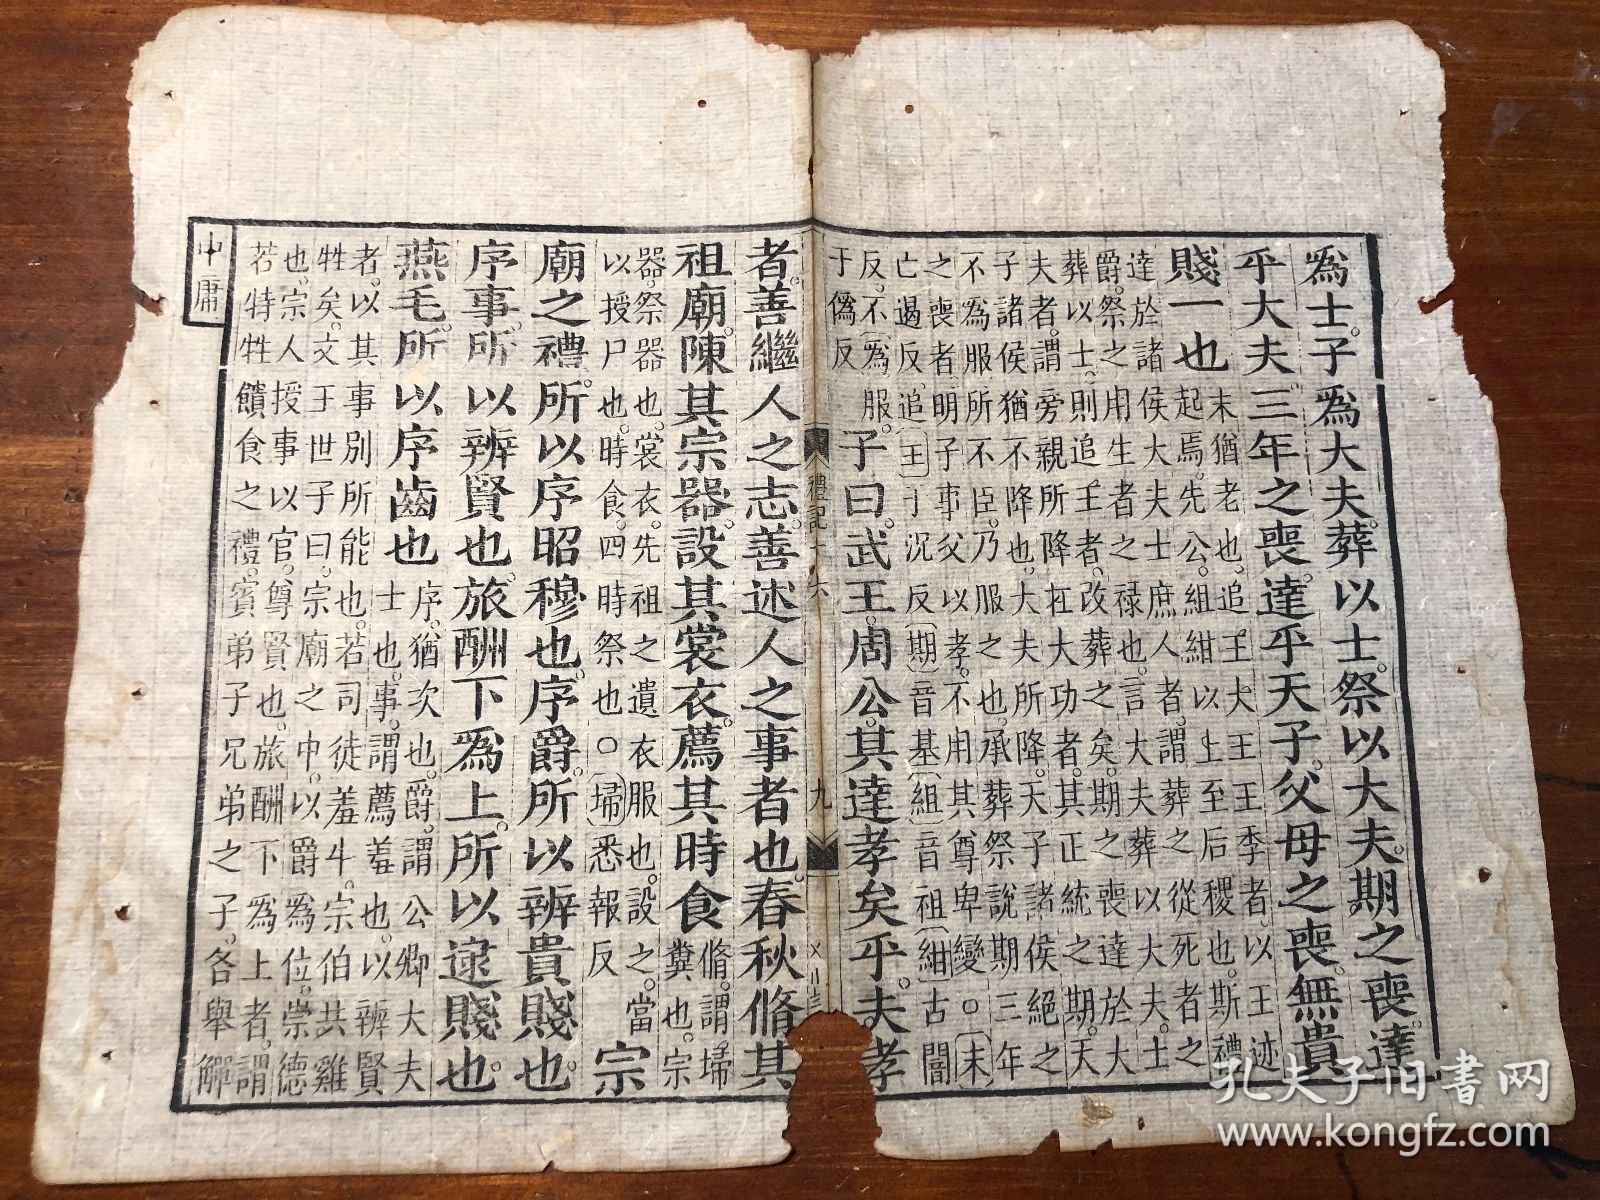 爲士。子爲大夫。葬以士。祭以大夫。期之喪。達
乎大夫。三年之喪。達乎天子。父母之喪。無貴
賤一也
末猶老也。追王大王王季者。以王迹
起焉。先公。組紺以上至后稷也。斯禮
達於諸侯大夫士庶人者。謂葬之從死者之
爵。祭之用生者之祿也。言大夫葬以大夫。士
葬以士。則追王者。改葬之矣。期之喪達於大
夫者。謂旁親所降在大功者。其正統之期。天
子諸侯猶不降也。大夫所降。天子諸侯絕之
不爲服。所不臣。乃服之也。承葬祭說期三年
之喪者。明子事父以孝。不用其尊卑變。○〔末〕
亡遏反〔追王〕于況反〔期〕音基〔組〕音祖〔紺〕古闇
反。不〔爲〕服。
于僞反
子曰。武王。周公。其達孝矣乎。夫孝
禮記十六
九
者。善繼人之志。善述人之事者也。春秋脩其
祖廟。陳其宗器。設其裳衣。薦其時食
脩。謂埽
糞也。宗
器。祭器也。裳衣。先祖之遺衣服也。設之。當
以授尸也。時食。四時祭也○〔埽〕悉報反
宗
廟之禮。所以序昭穆也。序爵。所以辨貴賤也。
序事。所以辨賢也。旅酬下爲上。所以逮賤也。
燕毛。所以序齒也
序。猶次也。爵。謂公卿大夫
士也。事。謂薦羞也。以辨賢
者。以其事別所能也。若司徒羞牛。宗伯共雞
牲矣。文王世子曰。宗廟之中。以爵爲位。崇德
也。宗人授事以官。尊賢也。旅酬下爲上者。謂
若特牲饋食之禮。賓弟子兄弟之子。各舉觶
中庸
孔夫子旧書网
www.kongfz.com